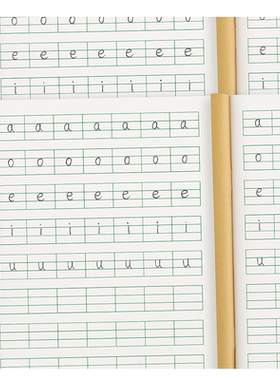 o o o o o o o
e e e e e e e
i i i i i i i
o o
e e
i i
a a a a a a a
o o o o o o o
e e e e e e e
i i i i i i i
u u u u u u u
a
o
e
i
u